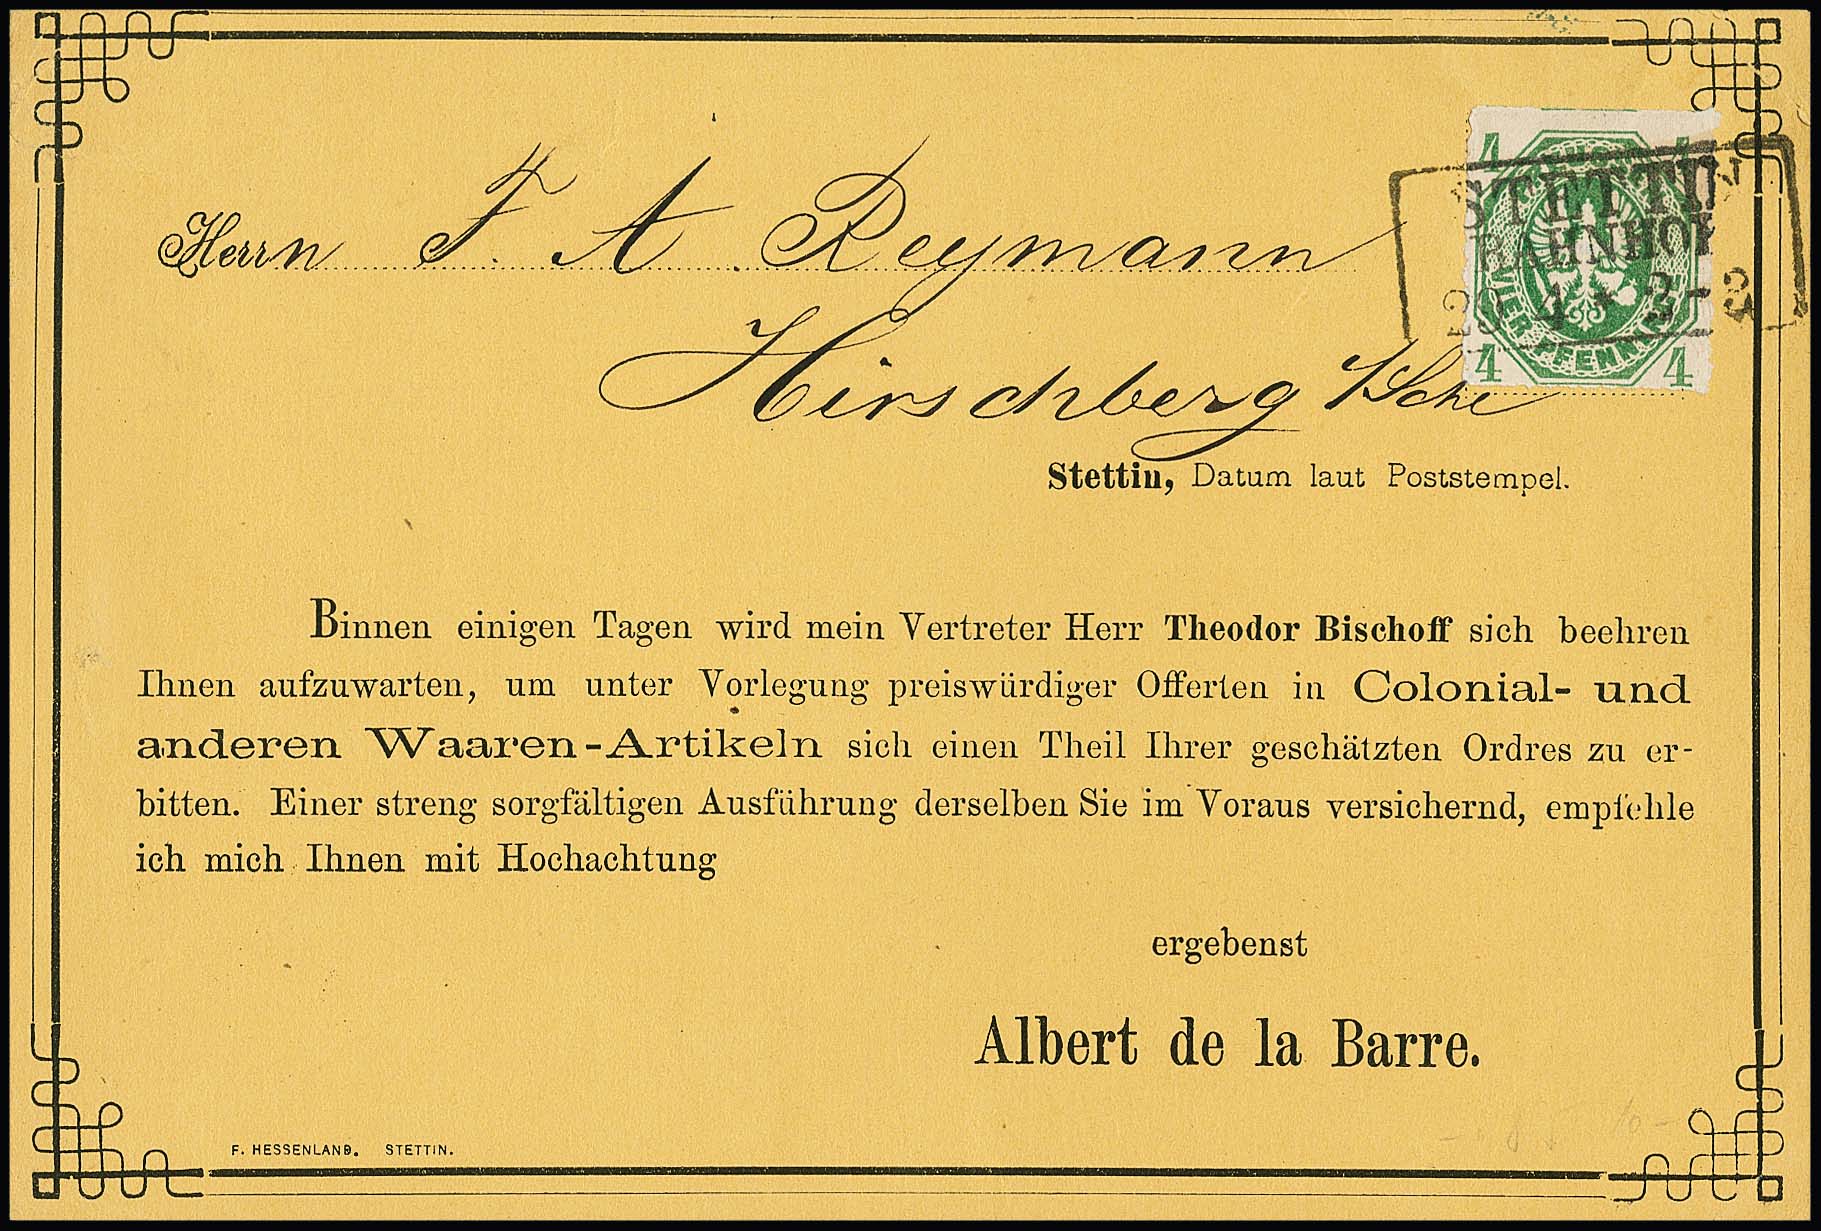 Herrn F. A. Reymann
Hirschberg
4
STETTIN
BAHNHOF
VIER PFENNINGE
4 4
Stettin, Datum laut Poststempel.
Binnen einigen Tagen wird mein Vertreter Herr Theodor Bischoff sich beehren
Ihnen aufzuwarten, um unter Vorlegung preiswürdiger Offerten in Colonial- und
anderen Waaren-Artikeln sich einen Theil Ihrer geschätzten Ordres zu er-
bitten. Einer streng sorgfältigen Ausführung derselben Sie im Voraus versichernd, empfehle
ich mich Ihnen mit Hochachtung
ergebenst
Albert de la Barre.
F. HESSENLAND. STETTIN.